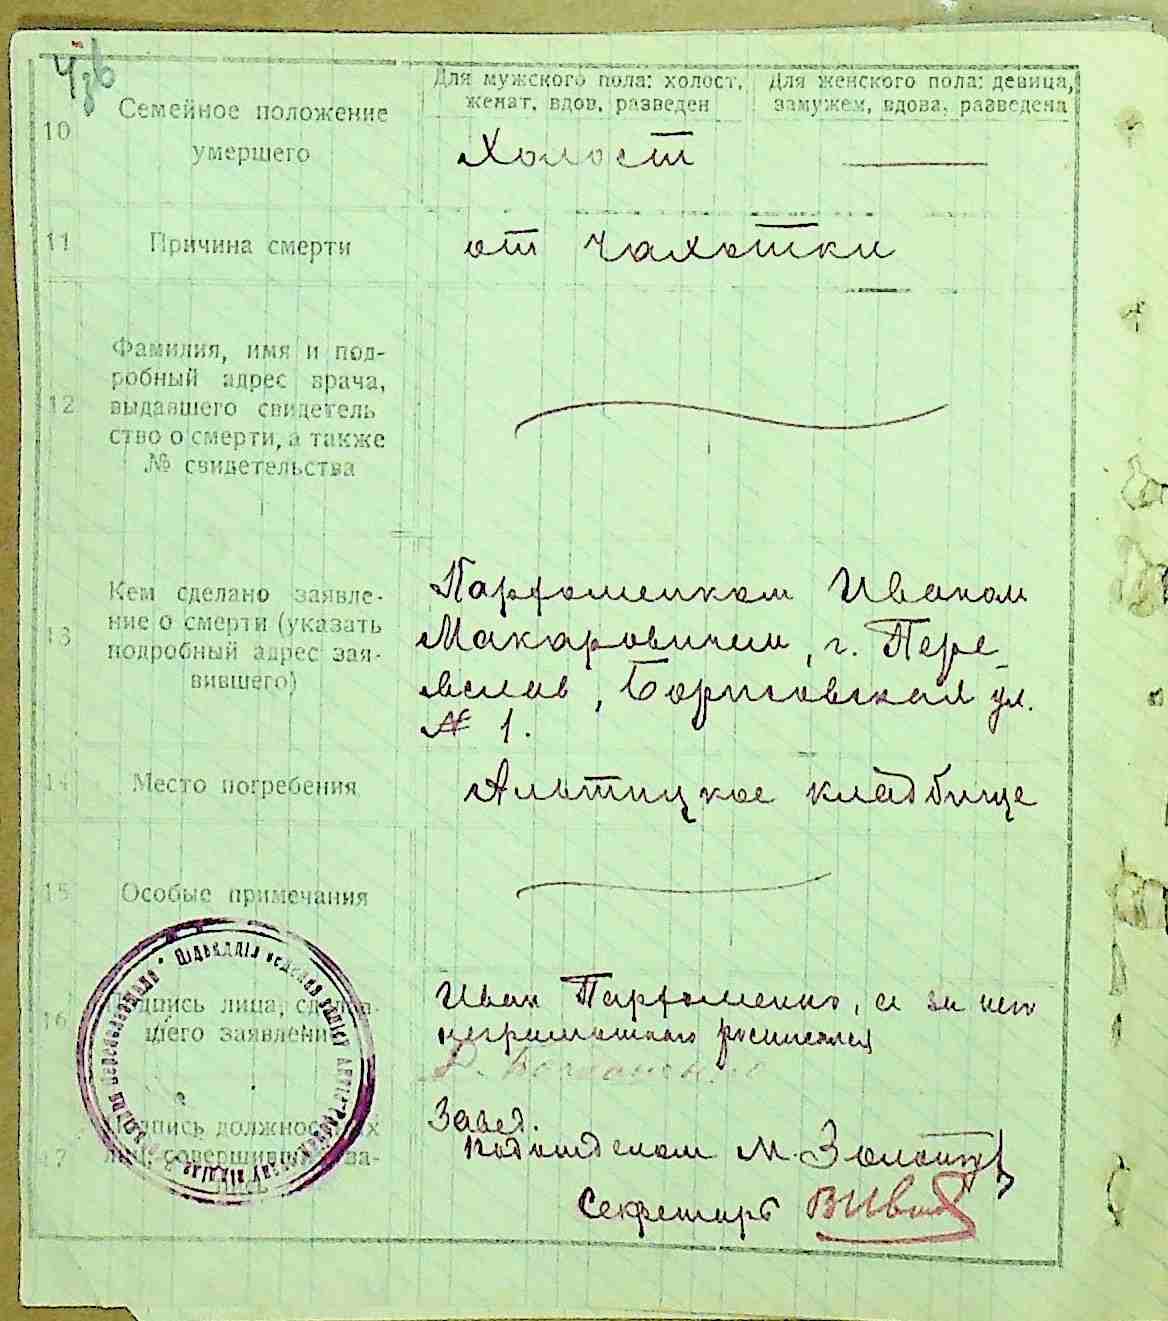 10
Семейное положение
умершего
Для мужского пола: холост,
женат, вдов, разведен
Для женского пола: девица,
замужем, вдова, разведена
Холост
11
Причина смерти
от чахотки
12
Фамилия, имя и под-
робный адрес врача,
выдавшего свидетель
ство о смерти, а также
№ свидетельства
13
Кем сделано заявле-
ние о смерти (указать
подробный адрес зая-
вившего)
Парфоменком Иваном
Макаровичем, г. Пере-
яслав, Борисовская ул.
№ 1.
14
Место погребения
Альтицкое кладбище
15
Особые примечания
16
Подпись лица, сделав-
шего заявление
Иван Парфоменко, а за него
неграмотного росписался
17
Подпись должностных
лиц, совершивших за-
Завед.
Подотделом М. Золот
Секретарь